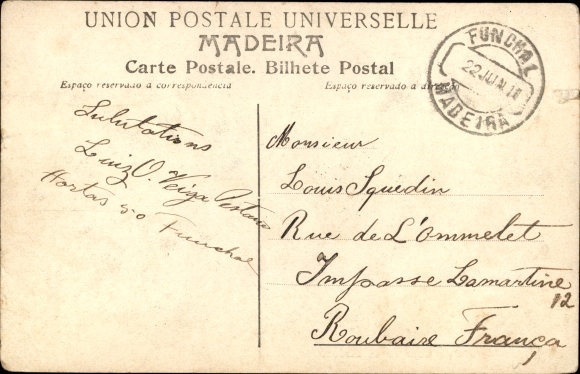 UNION POSTALE UNIVERSELLE
MADEIRA
Carte Postale. Bilhete Postal
Espaço reservado á correspondencia
Espaço reservado a
FUNCHAL
22 JUN
MADEIRA
Salutations
Luiz O. Veiga Pestana
Hortas 50 Funchal
Monsieur
Louis Squedin
Rue de L'Ommelet
Impasse Lamartine
12
Roubaix França